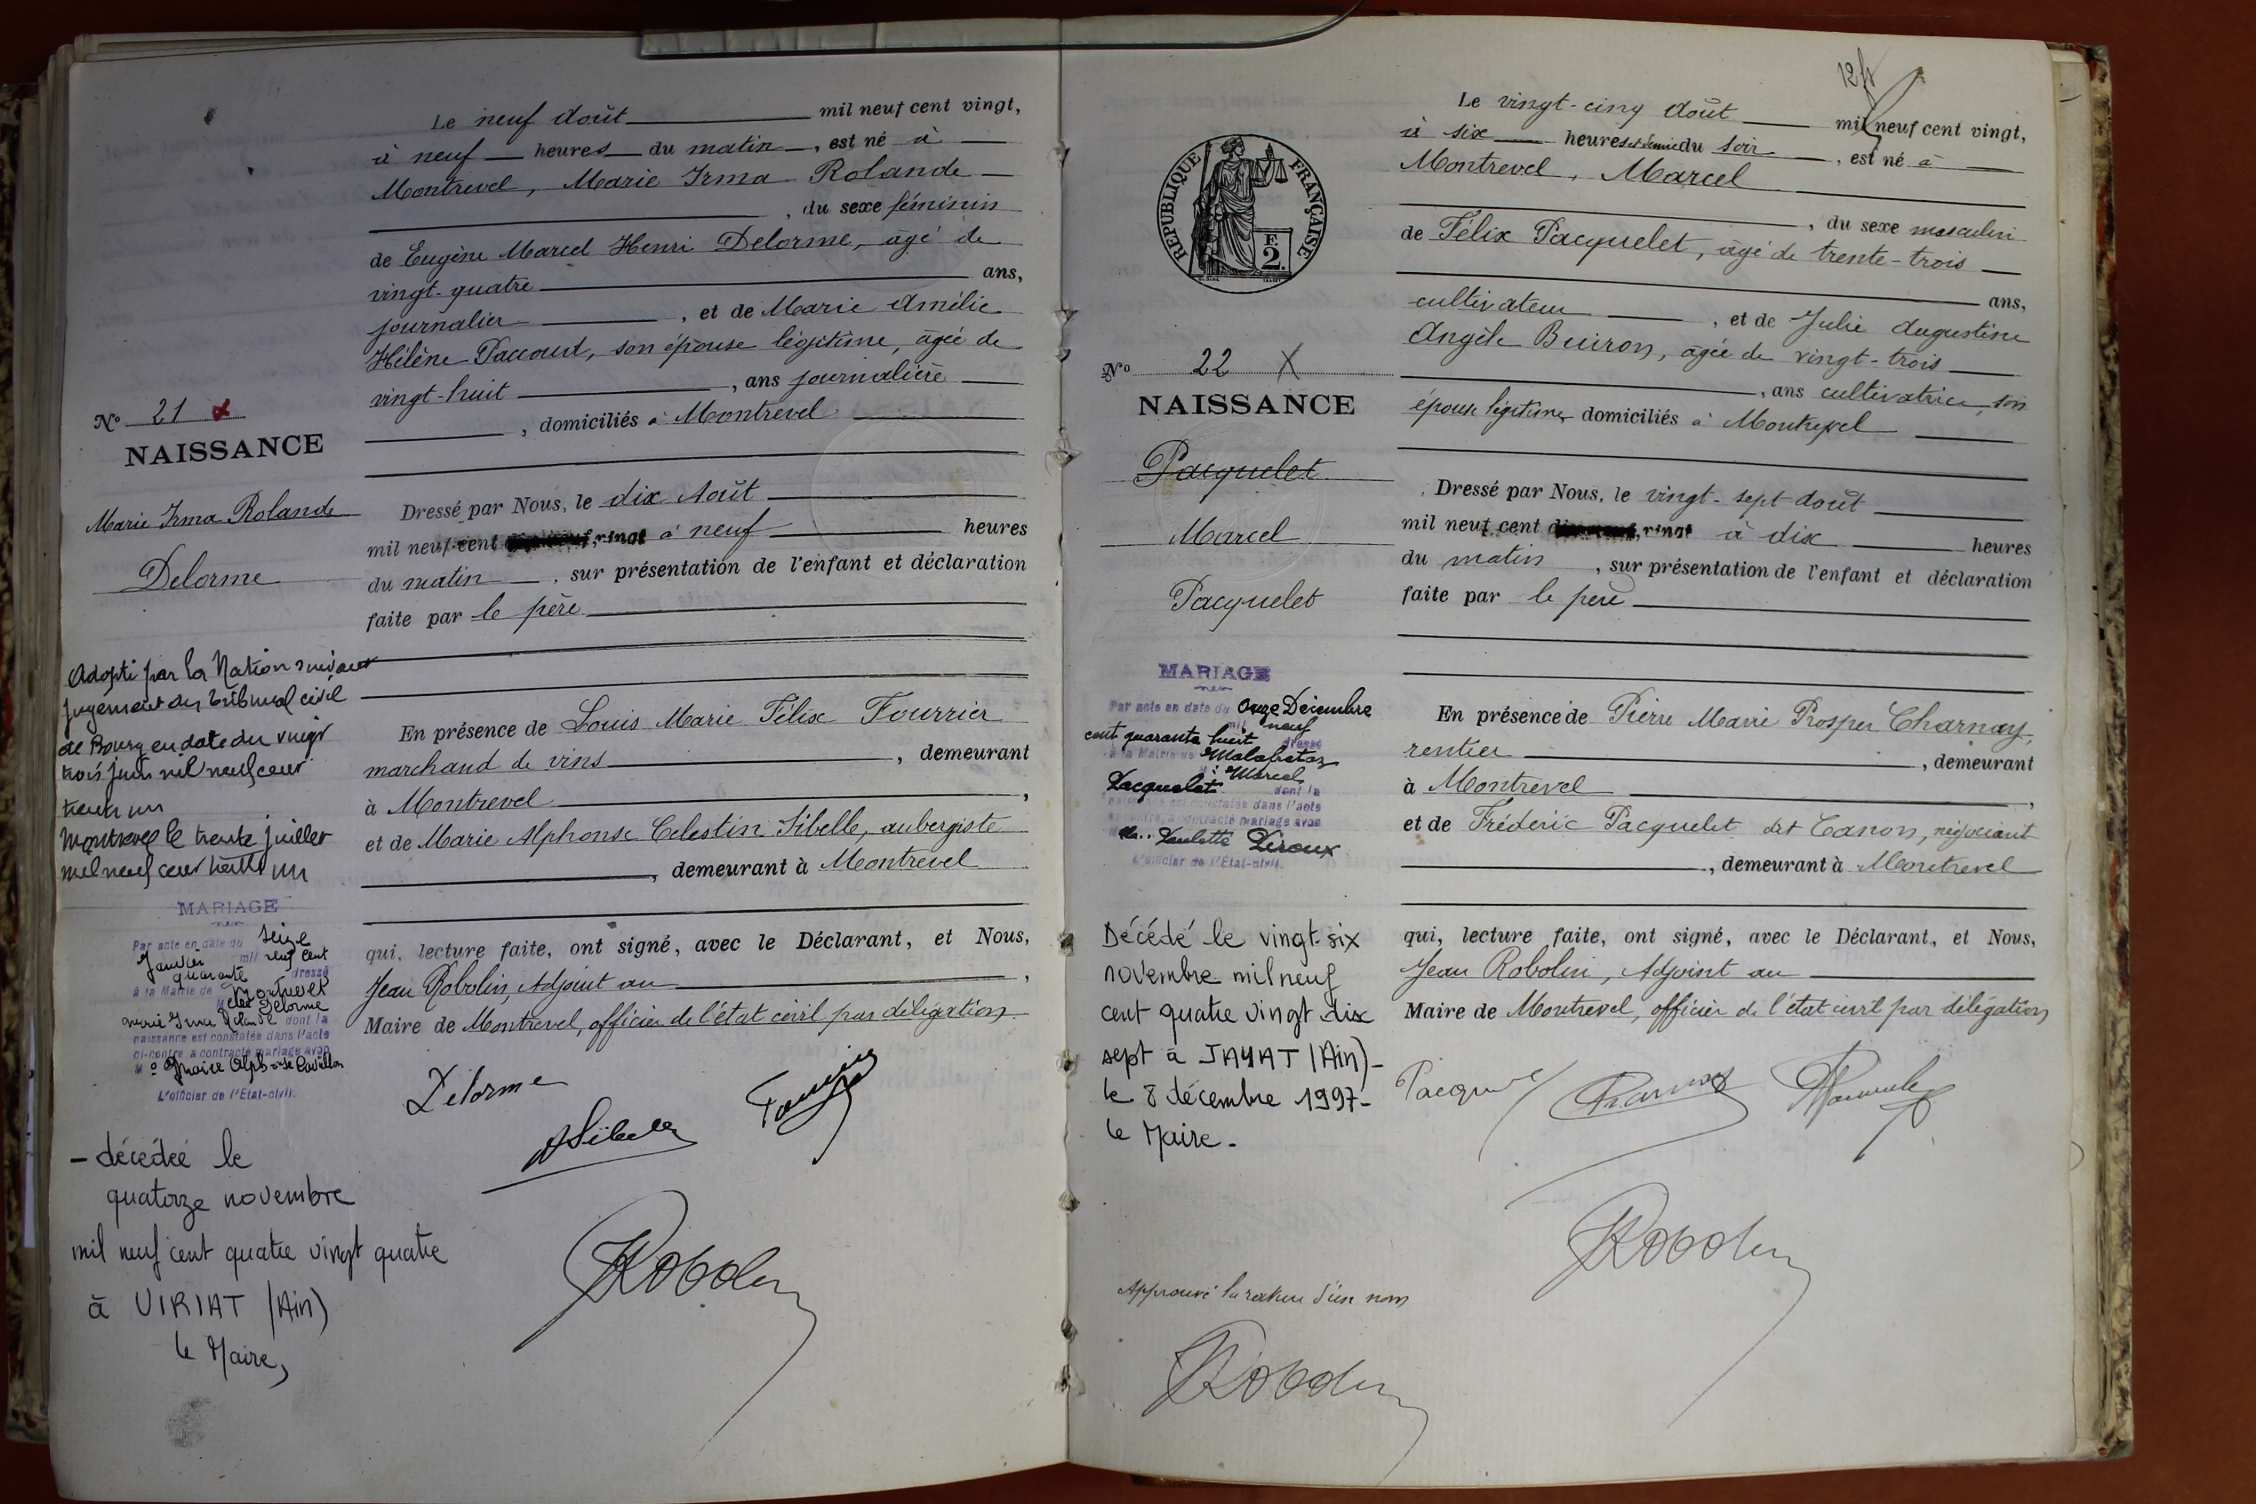 Le neuf Août mil neuf cent vingt,
à neuf heures du matin, est né à
Montrevel, Marie Irma Rolande
, du sexe féminin
de Eugène Marcel Henri Delorme, âgé de
vingt-quatre ans,
journalier, et de Marie Amélie
Hélène Paccoud, son épouse légitime, âgée de
vingt-huit, ans journalière
, domiciliés à Montrevel
N° 21
NAISSANCE
Marie Irma Rolande
Delorme
Dressé par Nous, le dix Août
mil neuf cent vingt à neuf heures
du matin, sur présentation de l'enfant et déclaration
faite par le père
Adopté par la Nation suivant
jugement du tribunal civil
de Bourg en date du vingt
trois juin mil neuf cent
trente un
Montrevel le trente juillet
mil neuf cent trente un
En présence de Louis Marie Félix Fourrier
marchand de vins, demeurant
à Montrevel,
et de Marie Alphonse Celestin Sibelle, aubergiste
, demeurant à Montrevel
qui, lecture faite, ont signé, avec le Déclarant, et Nous,
Jean Robolin, Adjoint au,
Maire de Montrevel, officier de l'état civil par délégation.
MARIAGE
Par acte en date du seize
Janvier mil neuf cent
quarante dressé
à la Mairie de Montrevel
Delorme
Marie Irma Rolande dont la
naissance est constatée dans l'acte
ci-contre, a contracté mariage avec
L'officier de l'État-civil.
Delorme
ASibelle
Fourrier
Robolin
- décédée le
quatorze novembre
mil neuf cent quatre vingt quatre
à VIRIAT (Ain)
le Maire,
124
Le vingt-cinq Août mil neuf cent vingt,
à six heures et demie du soir, est né à
Montrevel, Marcel
, du sexe masculin
de Félix Pacquelet, âgé de trente-trois
ans,
cultivateur, et de Julie Augustine
Angèle Buiron, âgée de vingt-trois
, ans cultivatrice, son
épouse légitime, domiciliés à Montrevel
RÉPUBLIQUE FRANÇAISE
F.
2.
N° 22 X
NAISSANCE
Pacquelet
Marcel
Pacquelet
Dressé par Nous, le vingt-sept Août
mil neuf cent vingt à dix heures
du matin, sur présentation de l'enfant et déclaration
faite par le père
MARIAGE
Par acte en date du Onze Décembre
mil neuf
cent quarante huit dressé
à la Mairie de Malafretaz
Marcel
Pacquelet dont la
naissance est constatée dans l'acte
ci-contre, a contracté mariage avec
Paulette Péroux
L'officier de l'État-civil.
En présence de Pierre Marie Prosper Charnay,
rentier, demeurant
à Montrevel,
et de Fréderic Pacquelet dit Canon, négociant
, demeurant à Montrevel
qui, lecture faite, ont signé, avec le Déclarant, et Nous,
Jean Robolin, Adjoint au
Maire de Montrevel, officier de l'état civil par délégation
Décédé le vingt-six
novembre mil neuf
cent quatre vingt dix
sept à JAYAT (Ain)-
le 8 décembre 1997-
le Maire-
Pacquelet
Charnay
Robolin
Approuvé la rature d'un nom
Robolin